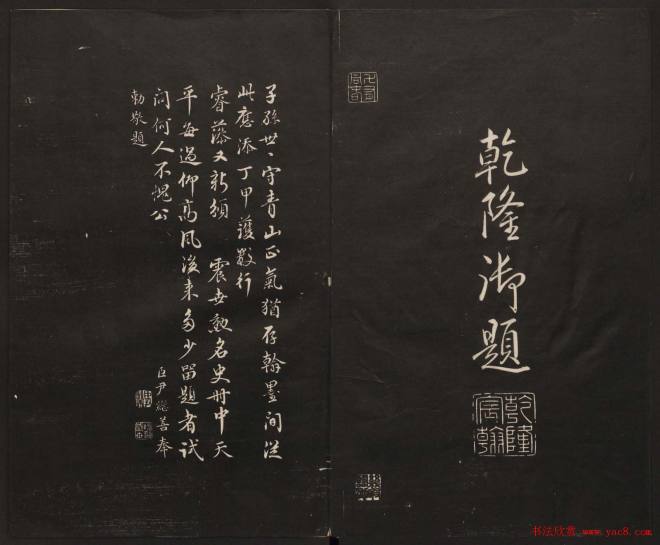 乾隆御題
乾隆宸翰
子孫世〻守青山正氣猶存翰墨間從
此應添丁甲護數行
睿藻又新頒 震世勲名史冊中天
平每過仰高風後来多少留題者試
問何人不愧公
臣尹繼善奉
勅敬題
书法欣赏.www.yac8.com